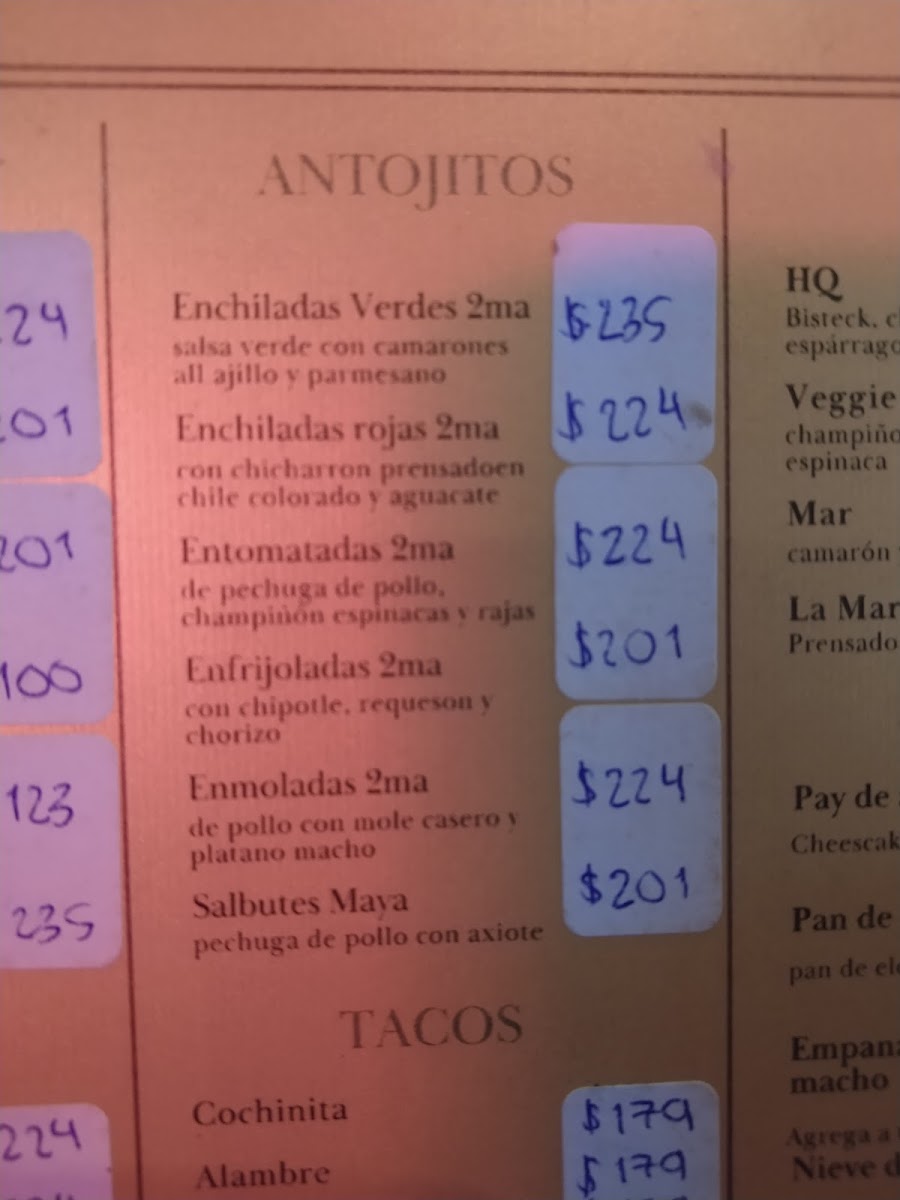 24
201
201
100
123
235
224
ANTOJITOS
Enchiladas Verdes 2ma $235
salsa verde con camarones
all ajillo y parmesano
Enchiladas rojas 2ma $224
con chicharron prensadoen
chile colorado y aguacate
Entomatadas 2ma $224
de pechuga de pollo,
champiñón espinacas y rajas
Enfrijoladas 2ma $201
con chipotle, requeson y
chorizo
Enmoladas 2ma $224
de pollo con mole casero y
platano macho
Salbutes Maya $201
pechuga de pollo con axiote
TACOS
Cochinita $179
Alambre $179
HQ
Bisteck,
espárrago
Veggie
champiño
espinaca
Mar
camarón
La Mar
Prensado
Pay de
Cheescak
Pan de
pan de ele
Empana
macho
Agrega a
Nieve d